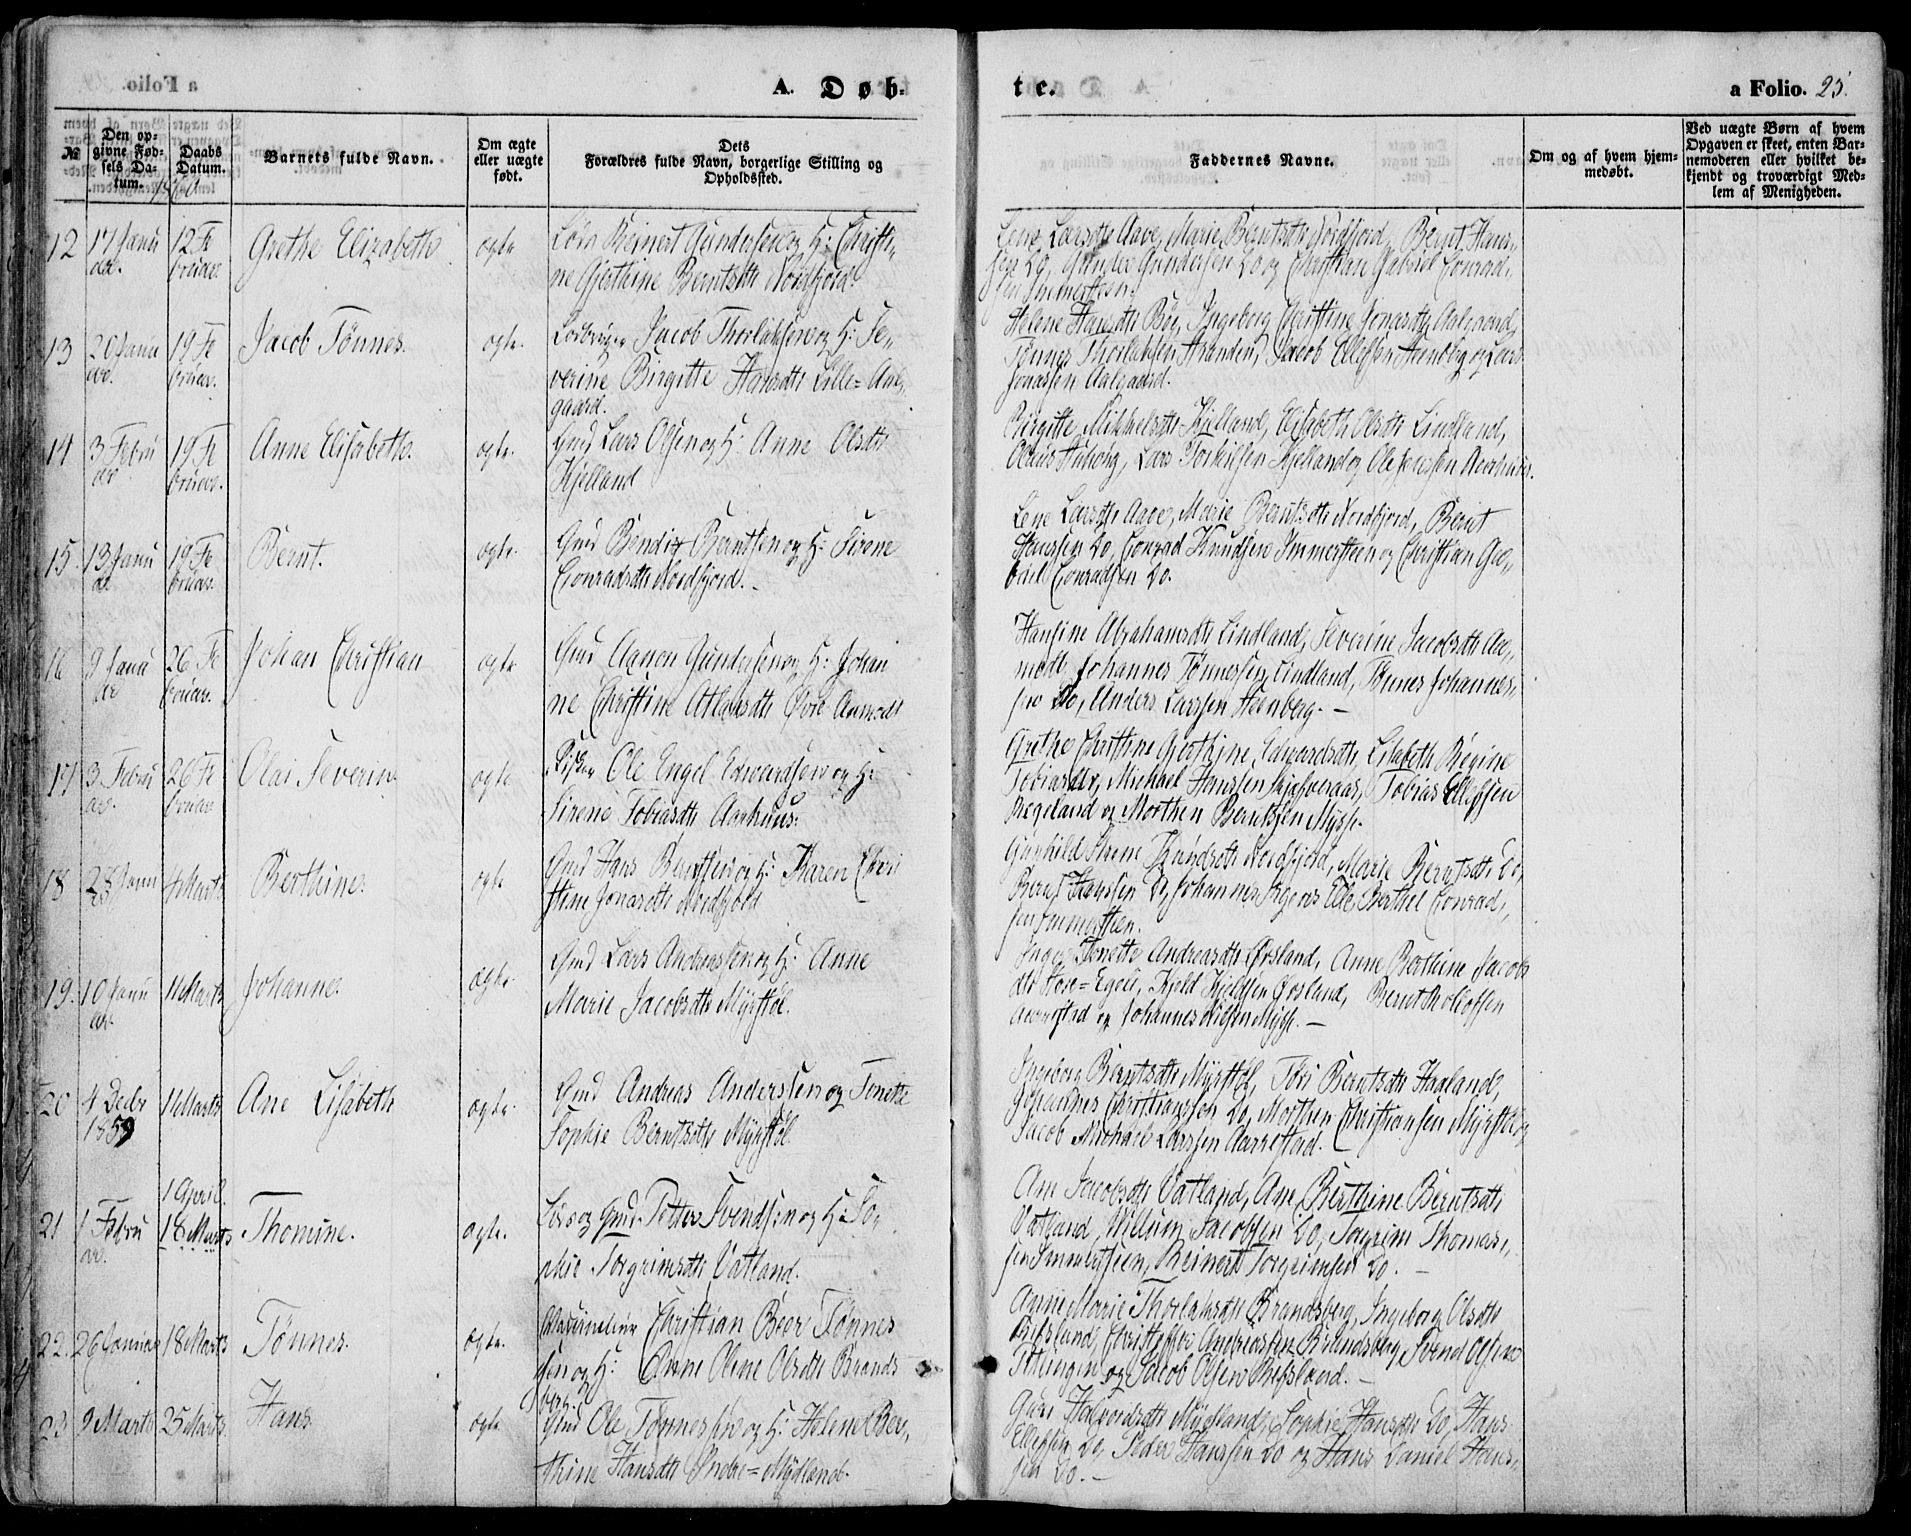 A. Døb-
te.
a Folio. 25.
№
Den op-
givne Fød-
sels Da-
tum.
Daabs
Datum.
1860
Barnets fulde Navn.
Om ægte
eller uægte
født.
Dets
Forældres fulde Navn, borgerlige Stilling og
Opholdssted.
Faddernes Navne.
Om og af hvem hjem-
medøbt.
Ved uægte Børn af hvem
Opgaven er skeet, enten Bar-
nemoderen eller hvilket be-
kjendt og troværdigt Med-
lem af Menigheden.
12 17 Janu 12 Fe Grethe Elizabeth ægte Reinert Gundersen og H: Christi„
ar. bruar. ne Gjerthine Berntsdtr Nordfjord.
Lene Larsdtr Aave, Marie Berntsdtr Nordfjord, Bernt Hans„
sen Do, Gunder Gundersen Do og Christian Gabriel Conrad„
sen Immersteen.
13 20 Janu 19 Fe Jacob Tønnes. ægte. Jacob Thorlaksen og H: Se„
ar. bruar. verine Birgitte Hansdtr Lille= Aal„
gaard.
Helene Hansdtr Bøe, Ingeborg Christine Jonasdtr Aalgaard,
Tønnes Thorlaksen Stranden, Jacob Ellefsen Steenberg og Lars
Jonassen Aalgaard.
14 3 Febru 19 Fe Anne Elisabeth. ægte. Gmd Lars Olsen og H: Anne Olsdtr
ar bruar. Kjelland
Birgitte Mikkelsdtr Kjelland, Elisabeth Olsdtr Lindland,
Lars Torkilsen Kjelland og Ole
15. 13 Janu 19 Fe Bernt. ægte. Gmd Bendix Berntsen og H: Sirene
ar bruar. Conradsdtr Nordfjord.
Lene Larsdtr Aave, Marie Berntsdtr Nordfjord, Bernt
Hanssen Do, Conrad Knudsen Immersteen og Christian Ga„
briel Conradsen Do.
16 9 Janu 26 Fe Johan Christian ægte Gmd Aanon Gundersen og H: Johan
ar bruar. ne Christine Atlaksdtr Øvre Aamodt
Hansine Abrahamsdtr Lindland, Severine Jacobsdtr Aa„
modt, Johannes Tønnessen Lindland, Tønnes Johannes„
sen Do, Anders Larssen Steenberg. —
17 3 Febru 26 Fe Olai Severin ægte Ole Engel Edvardsen og H:
ar. bruar Sirene Tobiasdtr Aarhuus.
Grethe Christine Gjerthine Edvardsdtr, Lisabeth Regine
Tobiasdtr, Michael Hanssen Skjefveraas, Tobias Ellefsen
Regeland og Morthen Berntsen Mysse.
18 28 Janu 4 Marts Berthine. ægte Gmd Hans Berntsen og H: Karen Chri
ar stine Jonasdtr Nordfjord
Gunhild Sirene Knudsdtr Nordfjord, Marie Berntsdtr Do,
Bernt Hanssen Do, Johannes Eie, Berthel Conrad„
sen Immersteen.
19. 10 Janu 11 Marts Johanne. ægte. Gmd Lars Andreassen og H: Anne
ar. Marie Jacobsdtr Myrstøl.
Inger Tonette Andreasdtr Ørsland, Anne Berthine Jacobs
dtr Store= Egeli, Kjeld Kjeldsen Ørsland, Bernt
Aarrestad og Johannes Nilsen Mysse. —
20 4 Decbr 11 Marts Ane Lisabeth ægte. Gmd Andreas Anderssen og Tonette
1859 Sophie Berntsdtr Myrstøl
Ingeborg Berntsdtr Myrstøl, Tori Berntsdtr Haaland,
Johannes Christianssen Do, Morthen Christiansen Myrstøl og
Jacob Michael Larssen Aarrestad.
1 April.
21 1 Febru 18 Marts Thomine. ægte. Petter Svendsen og H: So„
ar. phie Torgrimsdtr Vatland.
Ane Jacobsdtr Vatland, Ane Berthine Berntsdtr
Vatland, Willum Jacobsen Do, Torgrim Thomas„
sen Immersteen, Reinert Torgrimsen Do. —
22. 26 Januar 18 Marts Tønnes. ægte. Christian Beer Tønnes
sen og H: Anne Oline Olsdtr Brands
berg.
Anne Marie Thorlaksdtr Brandsberg, Ingeborg Olsdtr
Refsland, Christoffer Andreassen Brandsberg, Svend Olsen
og Jacob Olsen Refsland. —
23 9 Marts 25 Marts. Hans. ægte Gmd Ole Tønnessen og H: Helene Ber„
thine Hansdtr Øvdre= Mydland.
Guri Halvordsdtr Mydland, Sophie Hansdtr Do, Hans
Ellefsen Do, Peder Hanssen Do og Hans Daniel Hans„
sen Do. —